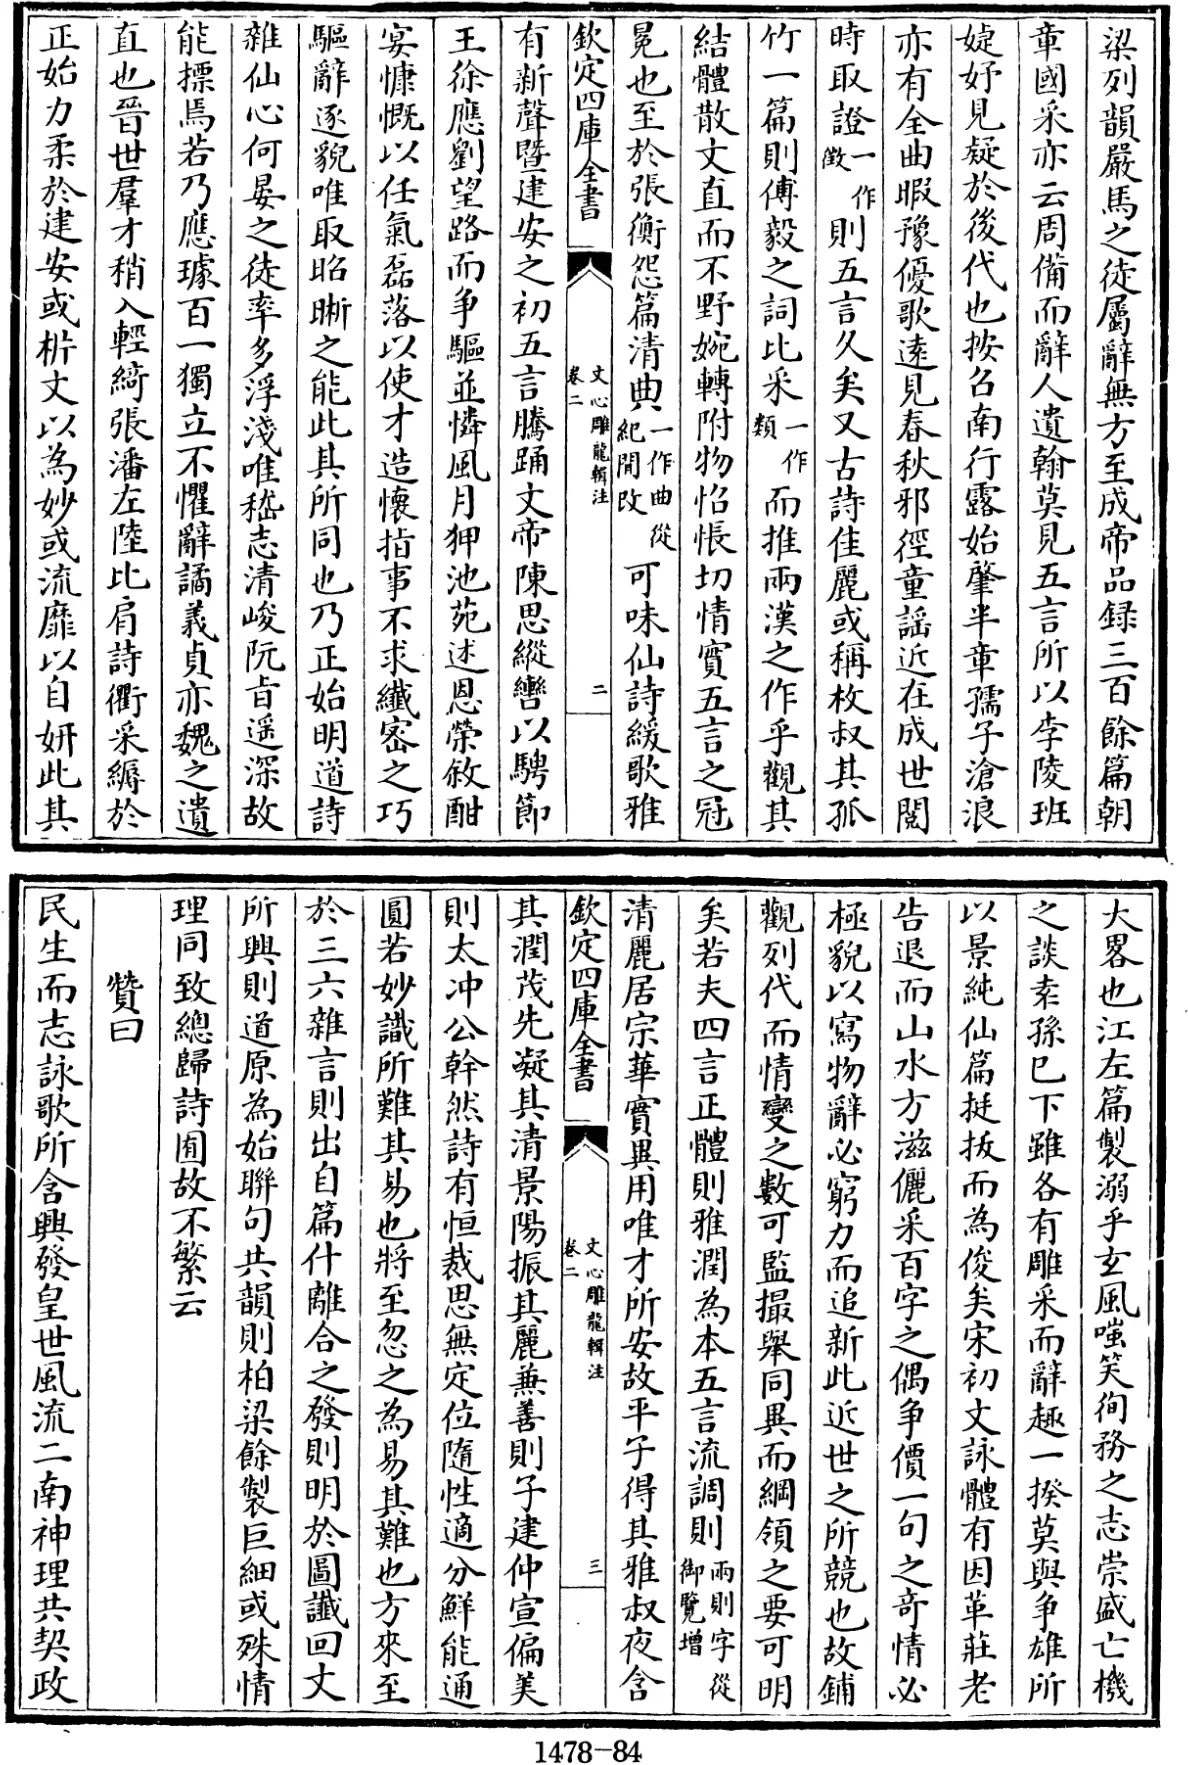 梁列韻嚴馬之徒屬辭無方至成帝品録三百餘篇朝
章國采亦云周備而辭人遺翰莫見五言所以李陵班
婕妤見疑於後代也按召南行露始肇半章孺子滄浪
亦有全曲暇豫優歌遠見春秋邪徑童謡近在成世閲
時取證一作徴則五言久矣又古詩佳麗或稱枚叔其孤
竹一篇則傅毅之詞比采一作類而推兩漢之作乎觀其
結體散文直而不野婉轉附物怊悵切情實五言之冠
冕也至於張衡怨篇清典一作曲從紀聞改可味仙詩緩歌雅
欽定四庫全書
文心雕龍輯注
卷二
二
有新聲暨建安之初五言騰踊文帝陳思縱轡以騁節
王徐應劉望路而争驅並憐風月狎池苑述恩榮敘酣
宴慷慨以任氣磊落以使才造懷指事不求纎宻之巧
驅辭逐貌唯取昭晣之能此其所同也乃正始明道詩
雜仙心何晏之徒率多浮淺唯嵇志清峻阮㫖遥深故
能摽焉若乃應璩百一獨立不懼辭譎義貞亦魏之遺
直也晉世羣才稍入輕綺張潘左陸比肩詩衢采縟於
正始力柔於建安或析文以為妙或流靡以自妍此其
大畧也江左篇製溺乎玄風嗤笑徇務之志崇盛亡機
之談袁孫已下雖各有雕采而辭趣一揆莫與争雄所
以景純仙篇挺拔而為俊矣宋初文詠體有因革莊老
告退而山水方滋儷采百字之偶争價一句之奇情必
極貌以寫物辭必窮力而追新此近世之所競也故鋪
觀列代而情變之數可監撮舉同異而綱領之要可明
矣若夫四言正體則雅潤為本五言流調則兩則字從御覽增
清麗居宗華實異用唯才所安故平子得其雅叔夜含
欽定四庫全書
文心雕龍輯注
卷二
三
其潤茂先凝其清景陽振其麗兼善則子建仲宣偏美
則太冲公幹然詩有恒裁思無定位隨性適分鮮能通
圓若妙識所難其易也將至忽之為易其難也方來至
於三六雜言則出自篇什離合之發則明於圖讖回文
所興則道原為始聯句共韻則柏梁餘製巨細或殊情
理同致總歸詩囿故不繁云
贊曰
民生而志詠歌所含興發皇世風流二南神理共契政
1478-84